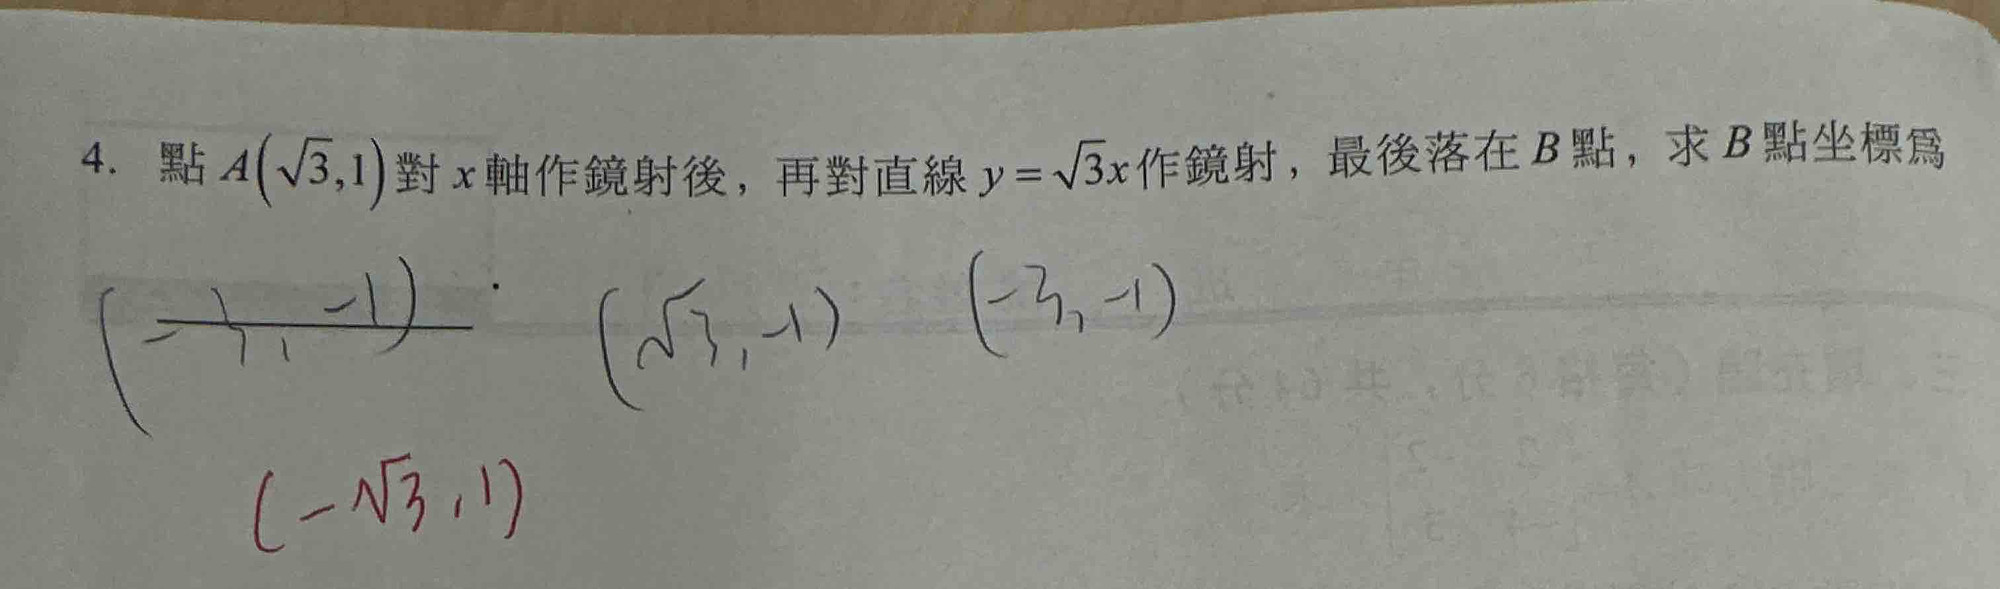 4. 點 A(√3,1) 對 x 軸作鏡射後，再對直線 y=√3x 作鏡射，最後落在 B 點，求 B 點坐標爲
(√3, -1) (-3, -1)
(-√3, 1)